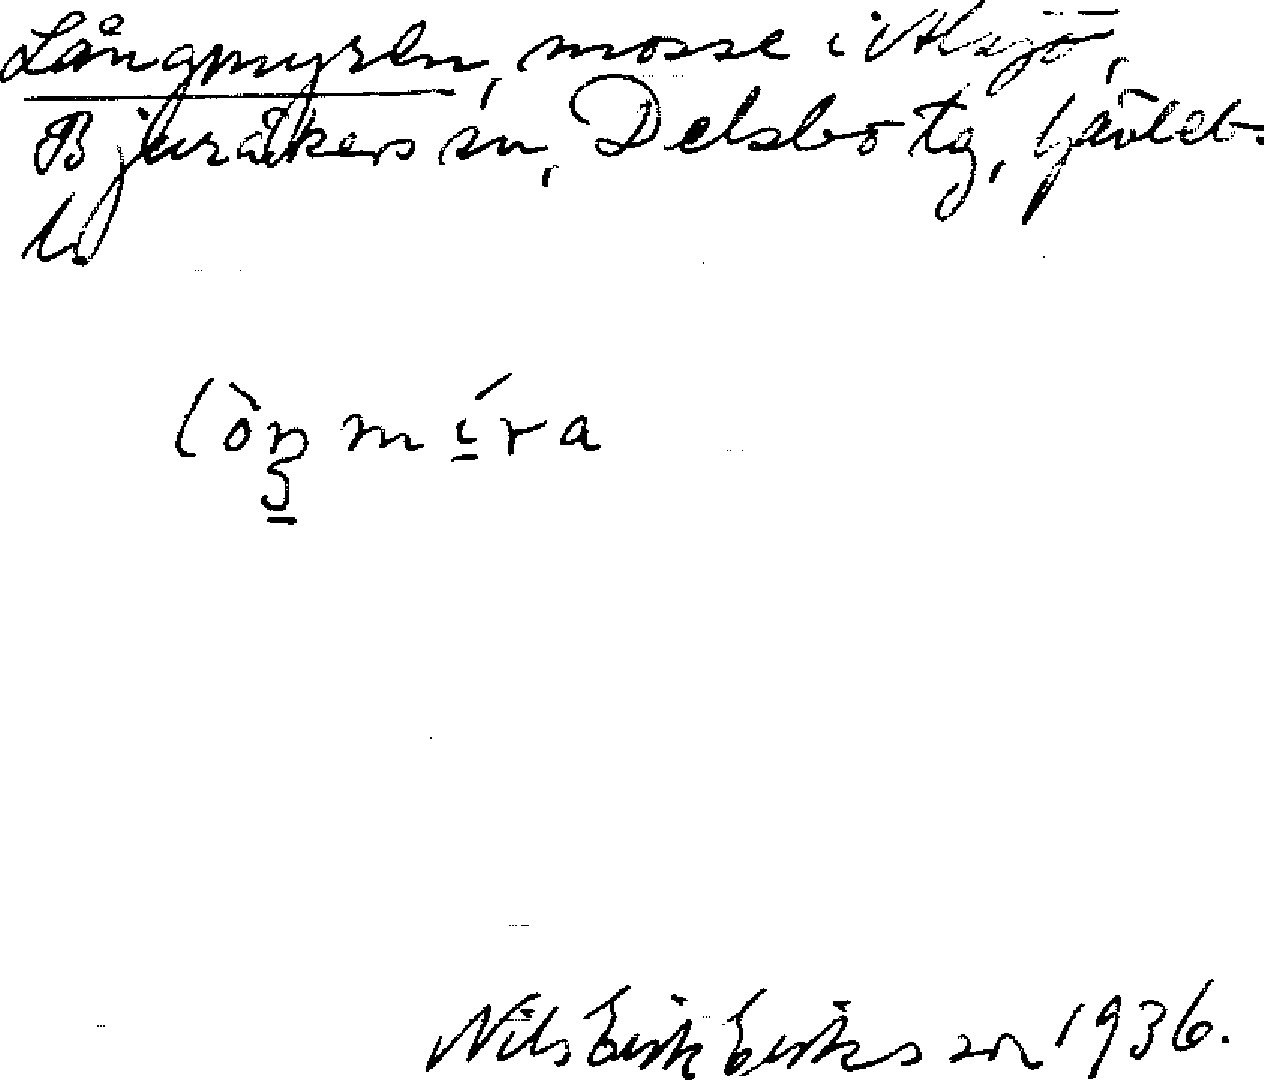 Långmyren, mosse i Alsjö,
Bjuråkers sn, Delsbo tg, Gävleb.
l.
Nils Erik Eriksson 1936.